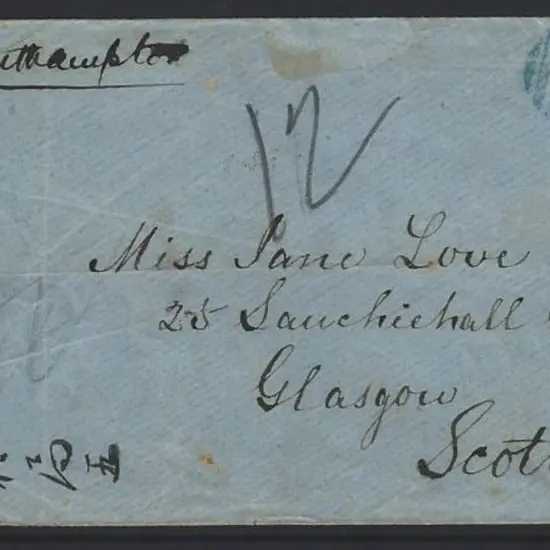 uthampton
12
Miss Jane Love
25 Sauchiehall
Glasgow
Scot